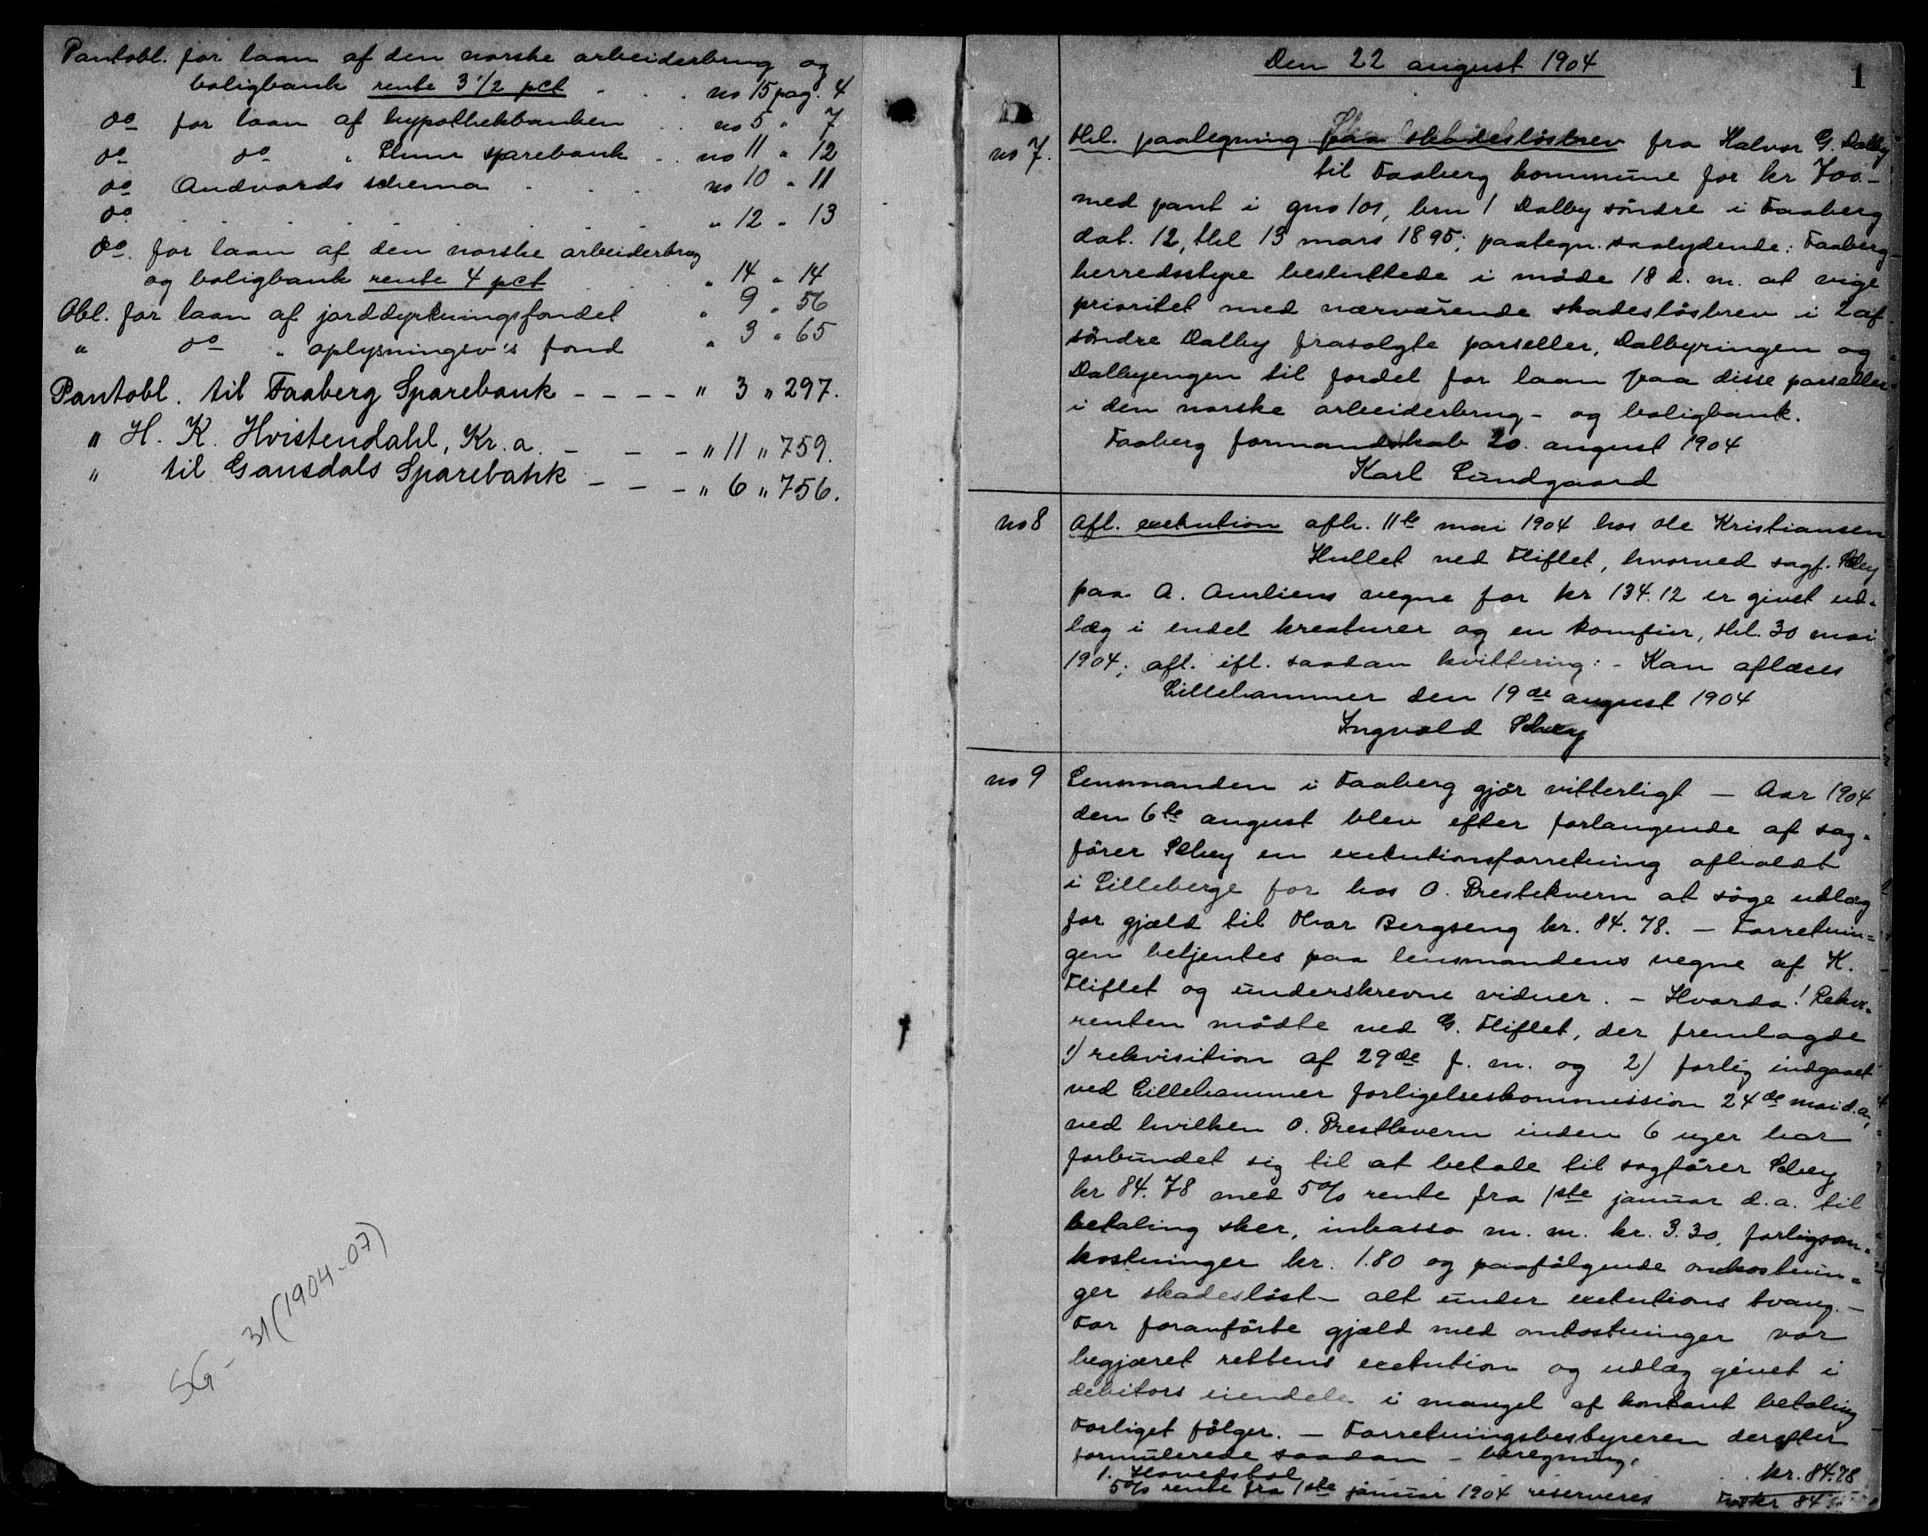 Pantobl. for laan af den norske arbeiderbrug og
boligbank rente 3 1/2 pct . . . no 15 pag. 4
do for laan af hypothekbanken . . no 5 " 7
do do " sparebank . . no 11 " 12
do Andvords schema . . . no 10 " 11
do . . . . . . . " 12 " 13
do. for laan af den norske arbeiderbrug
og boligbank rente 4 pct . . . " 14 " 14
Obl. for laan af jorddyrkningsfondet " 9 " 56
" do " oplysningsv's fond " 3 " 65
Pantobl. til Faaberg Sparebank - - - - " 3 " 297.
" H. K. Hvistendahl, Kr.a. - - - " 11 " 759.
" til Gausdals Sparebank - - - " 6 " 756.
SG - 31 (1904-07)
Den 22 august 1904
1
no 7. thl. paategning paa skadesløsbrev fra Halvor G. Dalby
til Faaberg kommune for kr 700.-
med pant i gno 101, brn 1 Dalby søndre i Faaberg
dat. 12, thl 13 mars 1895; paategn. saalydende: Faaberg
herredsstyre besluttede i møde 18 d. m. at vige
prioritet med nærværende skadesløsbrev i 2 af
søndre Dalby frasolgte parseller, Dalbyringen og
Dalbyengen til fordel for laan paa disse parseller
i den norske arbeiderbrug- og boligbank.
Faaberg formandskab 20. august 1904
Karl Lundgaard
no 8 Afl. exekution afh. 11te mai 1904 hos Ole Kristiansen
Hullet ved Fliflet, hvorved sagf. Schey
paa A. Amliens vegne for kr 134.12 er givet ud-
læg i endel kreaturer og en komfur, thl. 30 mai
1904; afl. ifl. saadan kvittering: - Kan aflæses
Lillehammer den 19de august 1904
Ingvald Schey
no 9 Lensmanden i Faaberg gjør vitterligt - Aar 1904
den 6te august blev efter forlangende af sag-
fører Schey en exekutionsforretning afholdt
i Lilleberge for hos O. Prestekvern at søge udlæg
for gjæld til Ovar Bergseng kr. 84.78. - Forretnin-
gen betjentes paa lensmandens vegne af K.
Fliflet og underskrevne vidner. - Hvorda! Rekvi-
renten mødte ved G. Fliflet, der fremlagde
1) rekvisition af 29de f. m. og 2) forlig indgaaet
ved Lillehammer forligelseskommission 24de mai d.a,
ved hvilken O. Prestkvern inden 6 uger har
forbundet sig til at betale til sagfører Schey
kr 84.78 med 5% rente fra 1ste januar d.a. til
betaling sker, inkasso m. m. kr. 3.30, forligsom-
kostninger kr. 1.80 og paafølgende omkostnin-
ger skadesløst - alt under exekutions tvang. -
For foranførte gjæld med omkostninger var
begjæret rettens exekution og udlæg givet i
debitors eiendele i mangel af kontant betaling
Forliget følger. - Forretningsbestyreren derefter
formulerede saadan - beregning:
1. Hovedstol . . kr. 84.78
5% rente fra 1ste januar 1904 reserveres kr 84